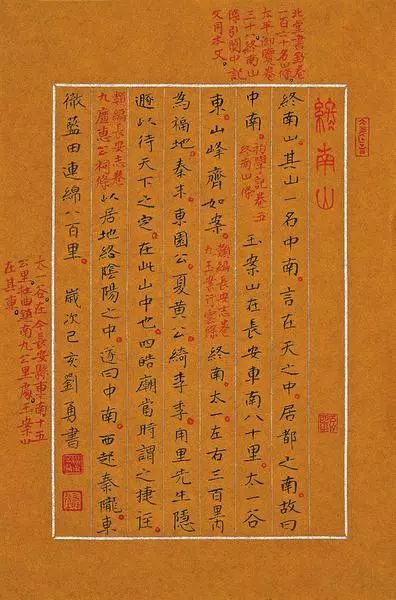 終南山
北堂書鈔卷
一百六十名山條
太平御覽卷
三十八終南山
條引關中記
文同本文。
終南山。其山一名中南。言在天之中。居都之南。故曰
中南。初學記卷五
終南山條
玉案山在長安東南八十里。太一谷
東。山峰齊如案。類編長安志卷
九玉案
終南太一左右三百里內
為福地。秦末東園公夏黃公綺季季用里先生隱
遯以待天下之定。在此山中也。四皓廟當時謂之捷徑
類編長安志卷
九盧惠公祠條
以居地絡陰陽之中。曰中南。西起秦隴東
徹藍田連綿八百里。歲次己亥劉勇書
太一谷。在今長安縣東南十五
公里杜曲鎮南九公里處。玉案山
在其東。